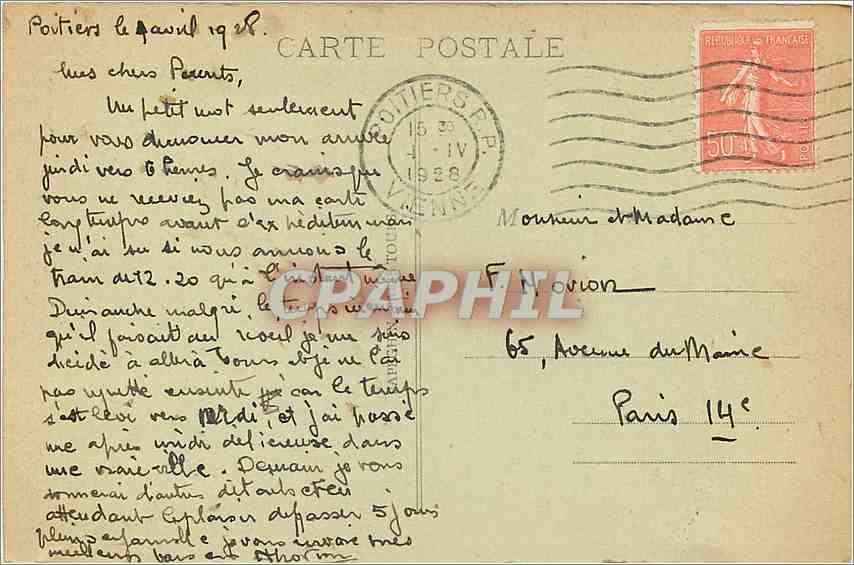 Poitiers le 4 avril 1928.
CARTE POSTALE
Mes chers Parents,
Un petit mot seulement
pour vous annoncer mon arrivée
jeudi vers 6 heures. Je crains que
vous ne receviez pas ma carte
longtemps avant
je n'ai su si nous aurions le
train de 12.20 qu'à l'instant même
Dimanche malgré le temps
qu'il faisait au réveil je me suis
décidé à aller à Tours et je ne l'ai
pas regretté ensuite car le temps
s'est levé vers midi, et j'ai passé
une après midi délicieuse dans
une vraie ville. Demain je vous
donnerai d'autres détails et en
attendant le plaisir de passer 5 jours
pleins en famille je vous envoie mes
meilleurs
POITIERS R.P.
15 30
4 - IV
1928
VIENNE
REPUBLIQUE FRANÇAISE
50
POSTES
Monsieur et Madame
F. Novion
65, Avenue du Maine
Paris 14e.
CPAPHIL